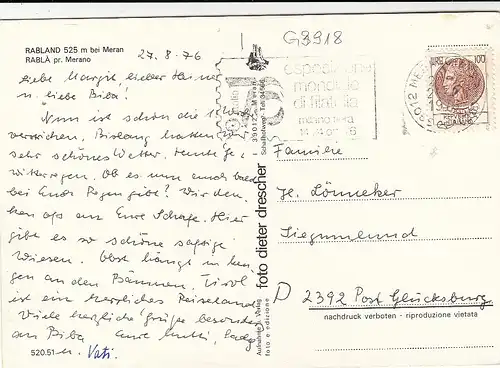 RABLAND 525 m bei Meran
RABLÀ pr. Merano
27.8.76
G3918
Liebe Margit, lieber Heiner
u. liebe Biba!
Nun ist schon die 1. Woche
verstrichen. Bislang hatten wir
sehr schönes Wetter. Heute Ge-
witterregen. Ob es nun auch
bei Euch Regen gibt? Wir den-
ken oft an Eure Schafe. Hier
gibt es so schöne saftige
Wiesen. Obst hängt in
gen an den Bäumen. Tirol
ist ein herrliches Reiseland.
Viele herzliche Grüße besonders
an Biba Eure Mutti,
u. Vati.
520.51
foto dieter drescher
Aufnahme u. Verlag
foto e edizione
39012 Meran
esposizione
mondiale
di filatelia
LIRE 100
Familie
H. Lönneker
Siegumlund
D 2392 Post Glücksburg
nachdruck verboten - riproduzione vietata